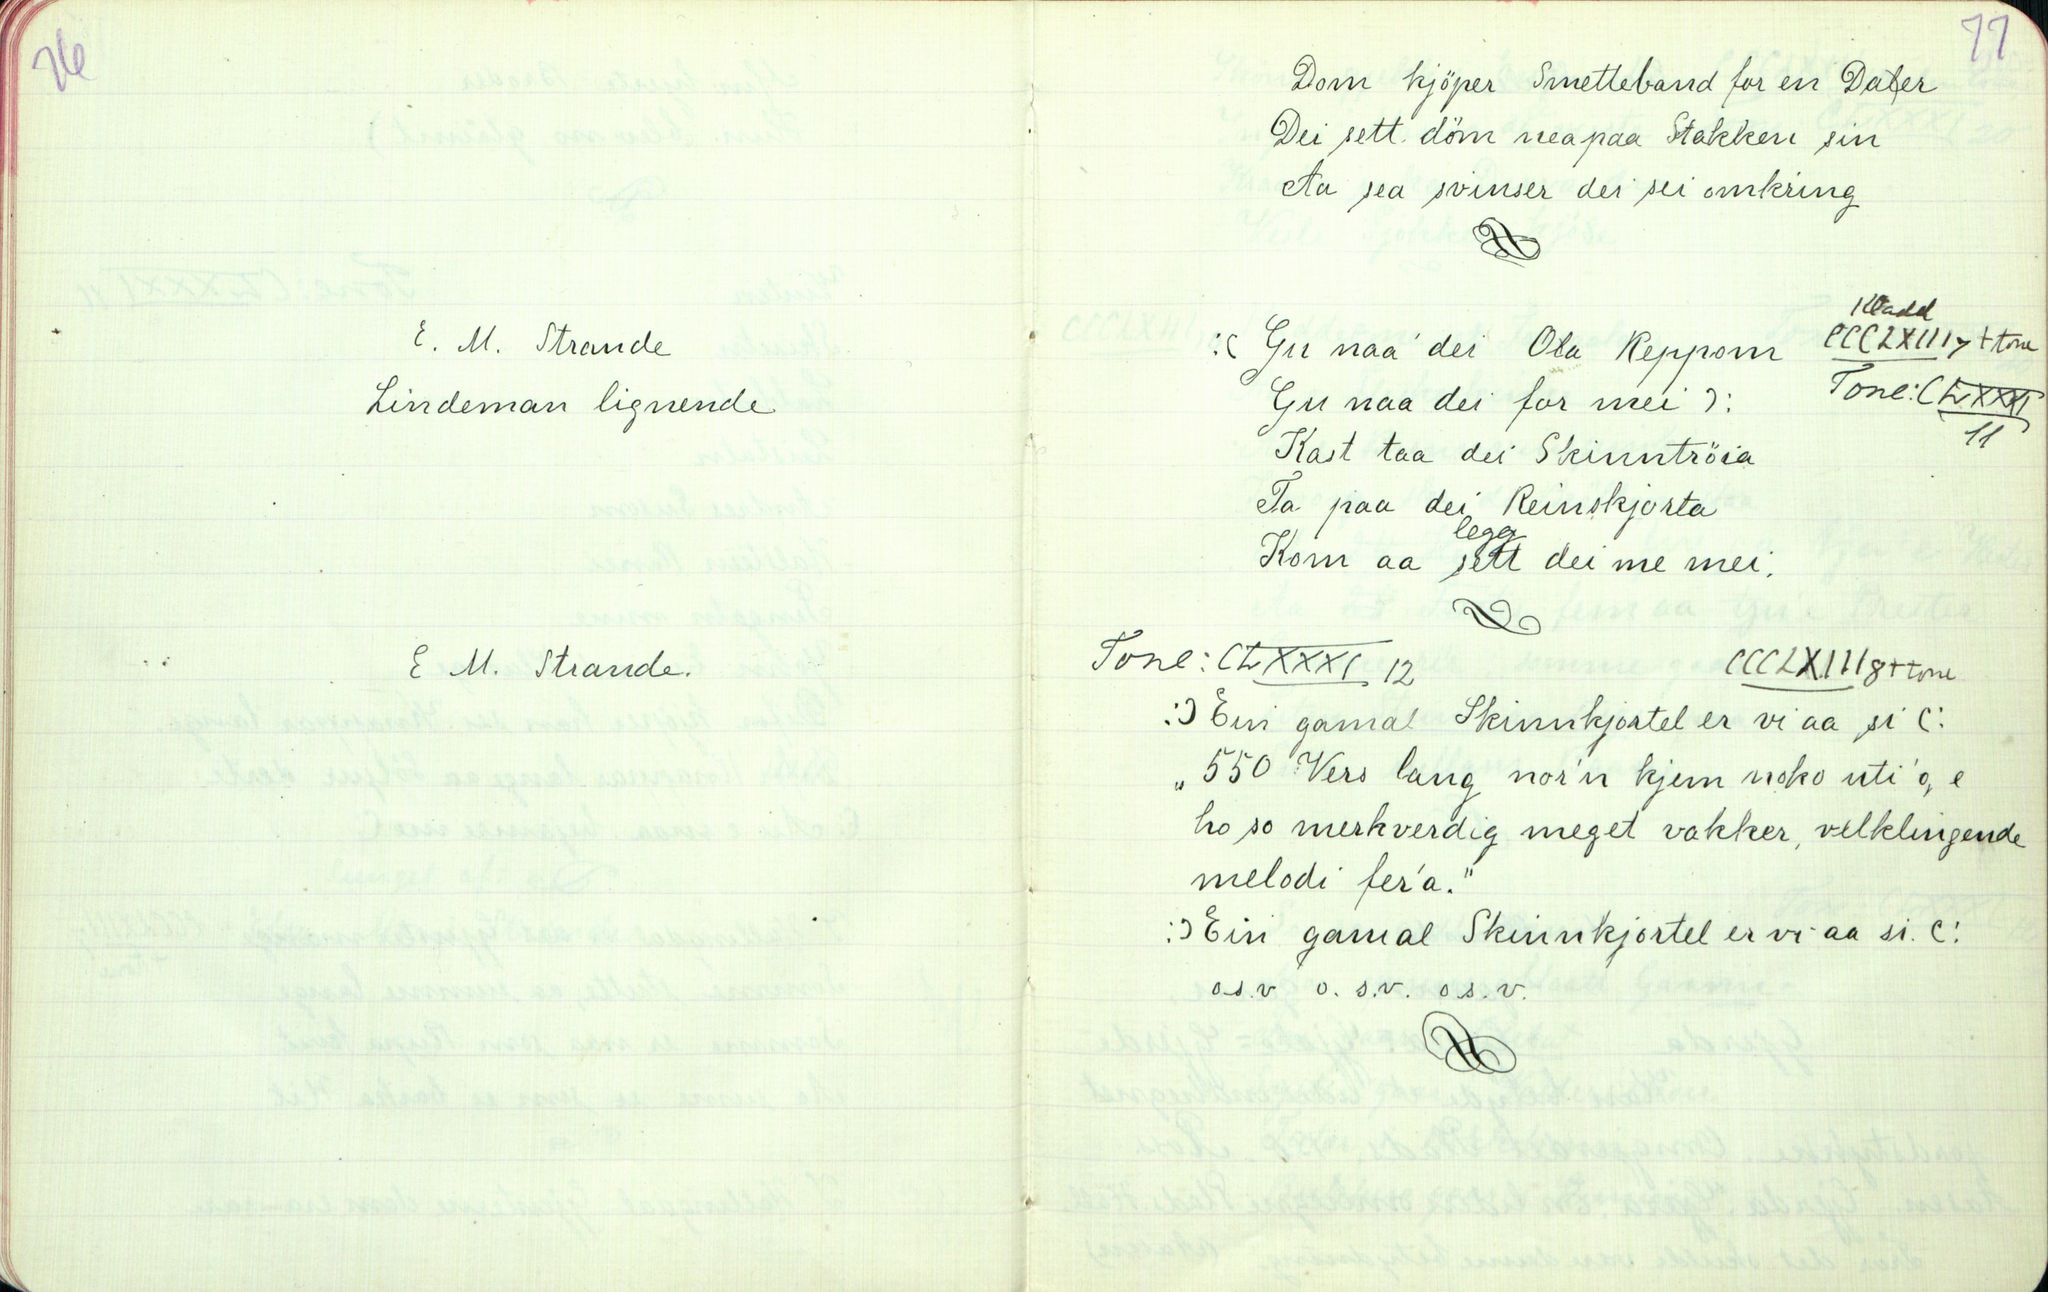 76
E. M. Strande
Lindeman lignende
E M. Strande.
77
Dom kjöper Smetteband for en Daler
Dei sett döm neapaa Stakken sin
Aa sea svinser dei sei omkring
Kladd
:( Gu naa dei Ola Reppom CCCLXIII7 + tone
Gu naa dei for mei ): Tone: CLXXXI
11
Kast taa dei Skinntröia
Ta paa dei Reinskjorta
legg
Kom aa sett dei me mei.
Tone: CLXXXI 12 CCCLXIII 8 + tone
:) Ein gamal Skinnkjortel er vi aa si (:
„550 Vers lang nor'n kjem noko uti'o, e
ho so merkverdig meget vakker, velklingende
melodi fer'a."
:) Ein gamal Skinnkjortel er vi aa si. (:
o.s.v o. s.v. o.s.v.